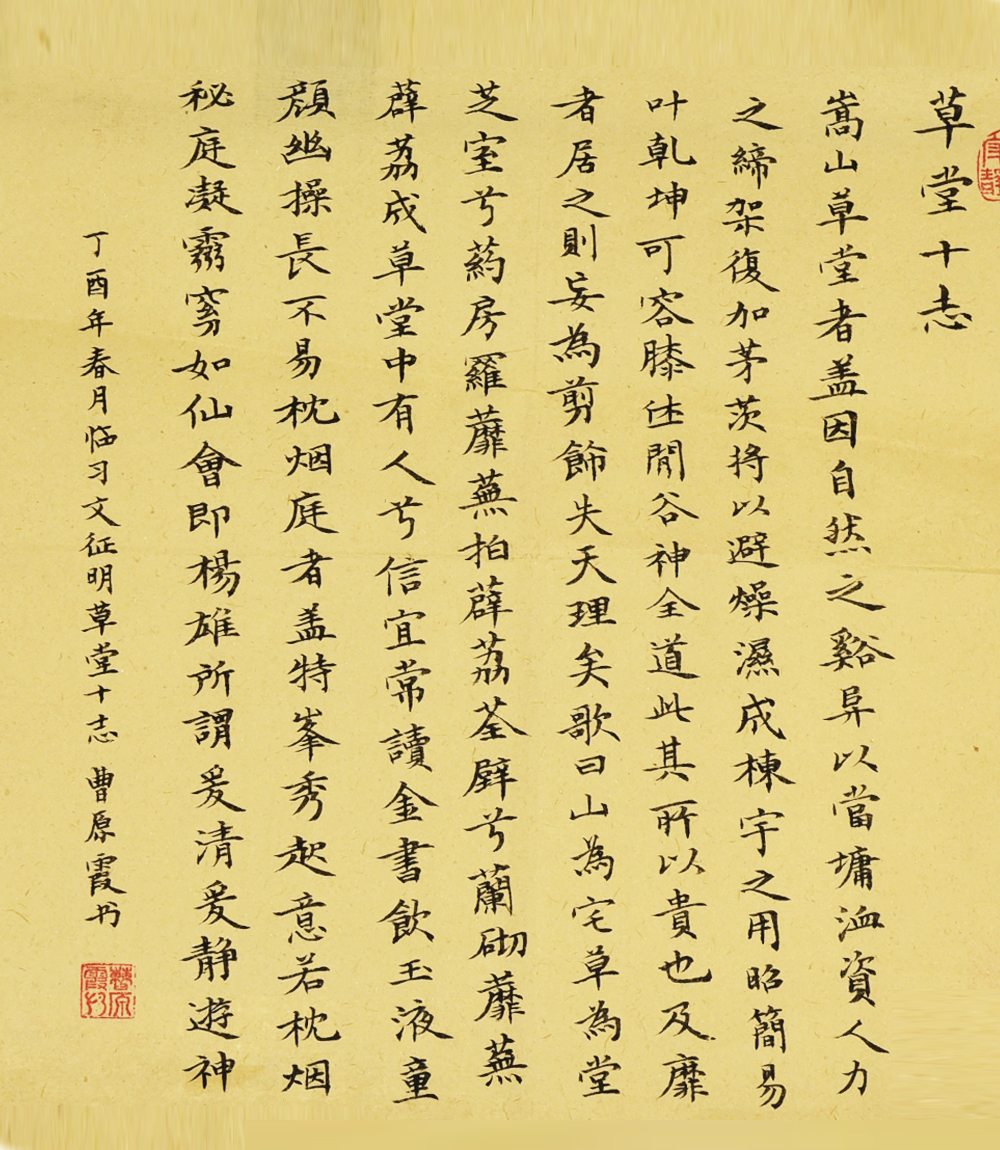 草堂十志
嵩山草堂者盖因自然之谿阜以當墉洫資人力
之締架復加茅茨将以避燥濕成棟宇之用昭簡易
叶乾坤可容膝休閒谷神全道此其所以貴也及靡
者居之則妄為剪餙失天理矣歌曰山為宅草為堂
芝室兮葯房羅蘼蕪拍薜荔荃壁兮蘭砌蘼蕪
薜荔成草堂中有人兮信宜常讀金書飲玉液童
顔幽操長不易枕烟庭者盖特峯秀起意若枕烟
秘庭凝霧窈如仙會即楊雄所謂爰清爰静遊神
丁酉年春月临习文征明草堂十志 曹原霞书
曹原霞印